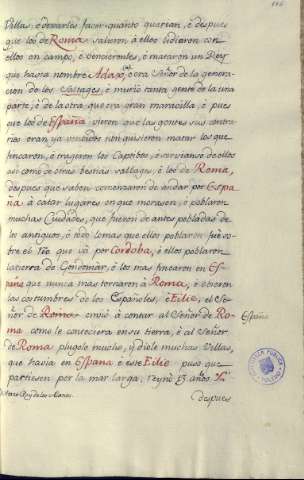 Villas, è dexarles facer quanto querian, è despues
que los de Roma salieron à ellos lidieron con
ellos en campo, è vencieronlos, è mataron un Rey
que havia nombre
è era Señor de la genera-
cion de los è murio tanta gente de la una
parte, è de la otra que era gran maravilla, è pues
que los de España vieron que las gentes sus contra-
rias eran ya vencidas non quisieron matar los que
fincaron, è traxeron los Captibos, è servianse de ellos
asi como de otras bestias salvages, è los de Roma,
despues que saben comenzaron de andar por Espa-
ña à catar lugares en que morasen, è poblaron
muchas Cuidades, que fueron de antes pobladas de
los antiguos, è todo lo mas que ellos poblaron fue so-
bre el rio que và por Cordoba, è ellos poblaron
la tierra de Gondomar, è los mas fincaron en Es-
paña que nunca mas tornaron à Roma, è ovieron
las costumbres de los Españoles, è Eilie, el Se-
ñor de Roma envió à contar al Señor de Ro-
ma como le conteciera en su tierra, è al Señor
de Roma plugole mucho, y diole muchas Villas,
que havia en España è este Eilie puso que
partiesen por la mar larga, reynó 13 años.
España
despues
BIBLIOTECA PUBLICA
TOLEDO